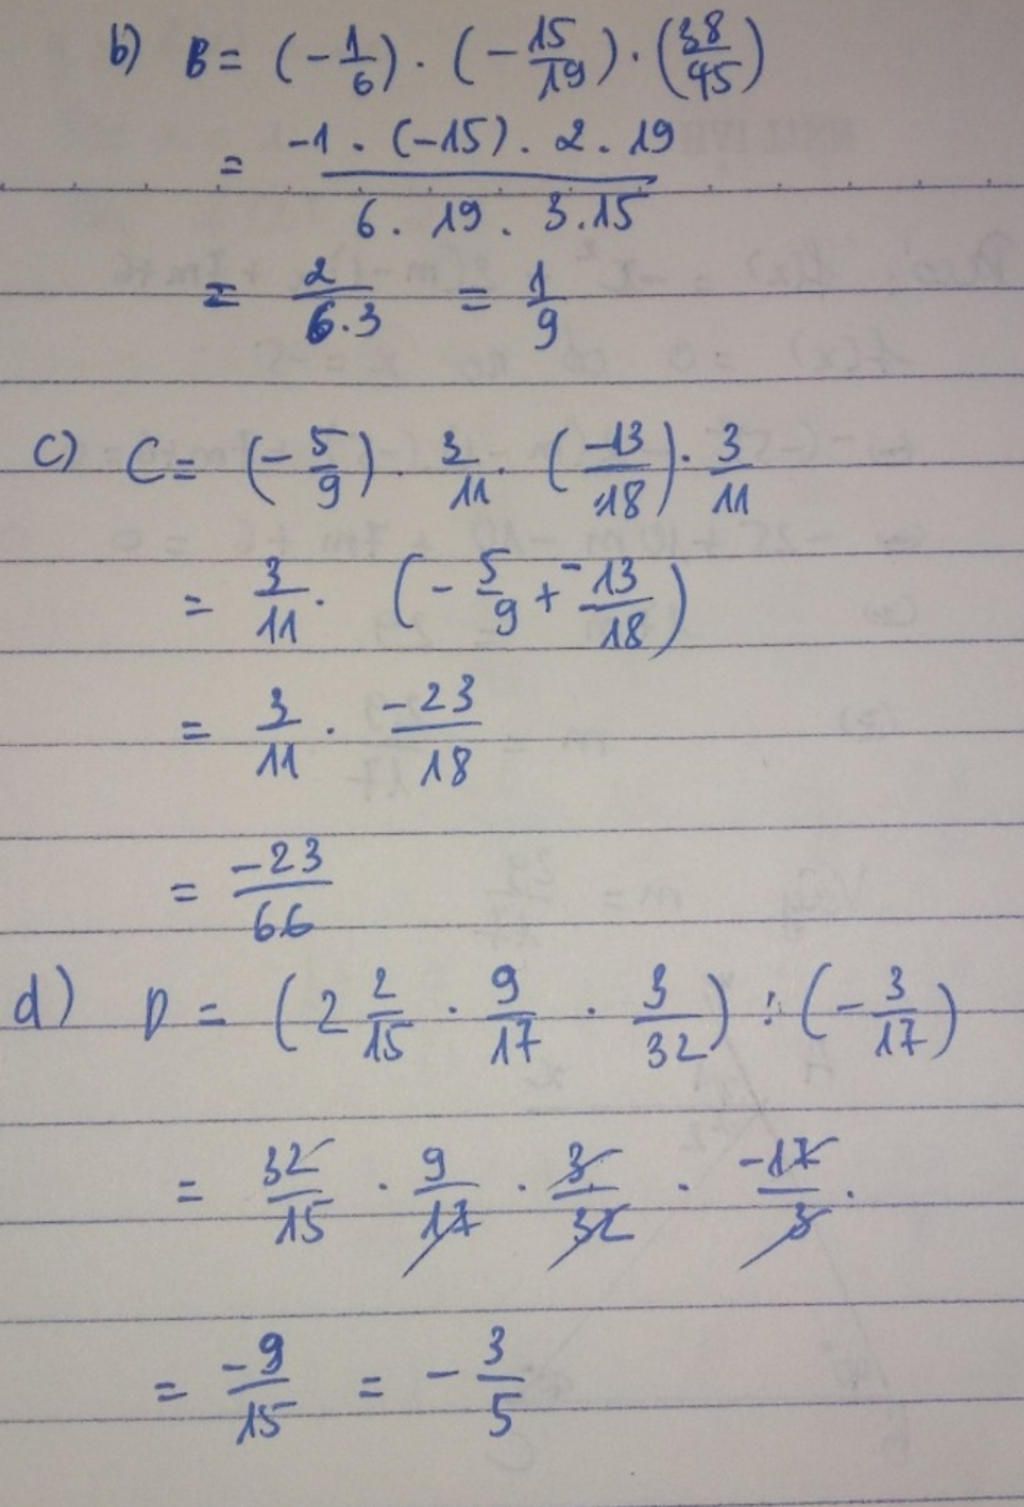 b) B = (-1/6) . (-15/19) . (38/45)
= -1 . (-15) . 2 . 19 / 6 . 19 . 3.15
= 2/6.3 = 1/9
c) C = (-5/9) . 3/11 . (-13/18) . 3/11
= 3/11 . (-5/9 + -13/18)
= 3/11 . -23/18
= -23/66
d) D = (2 2/15 . 9/17 . 3/32) : (-3/17)
= 32/15 . 9/17 . 3/32 . -17/3 .
= -9/15 = -3/5